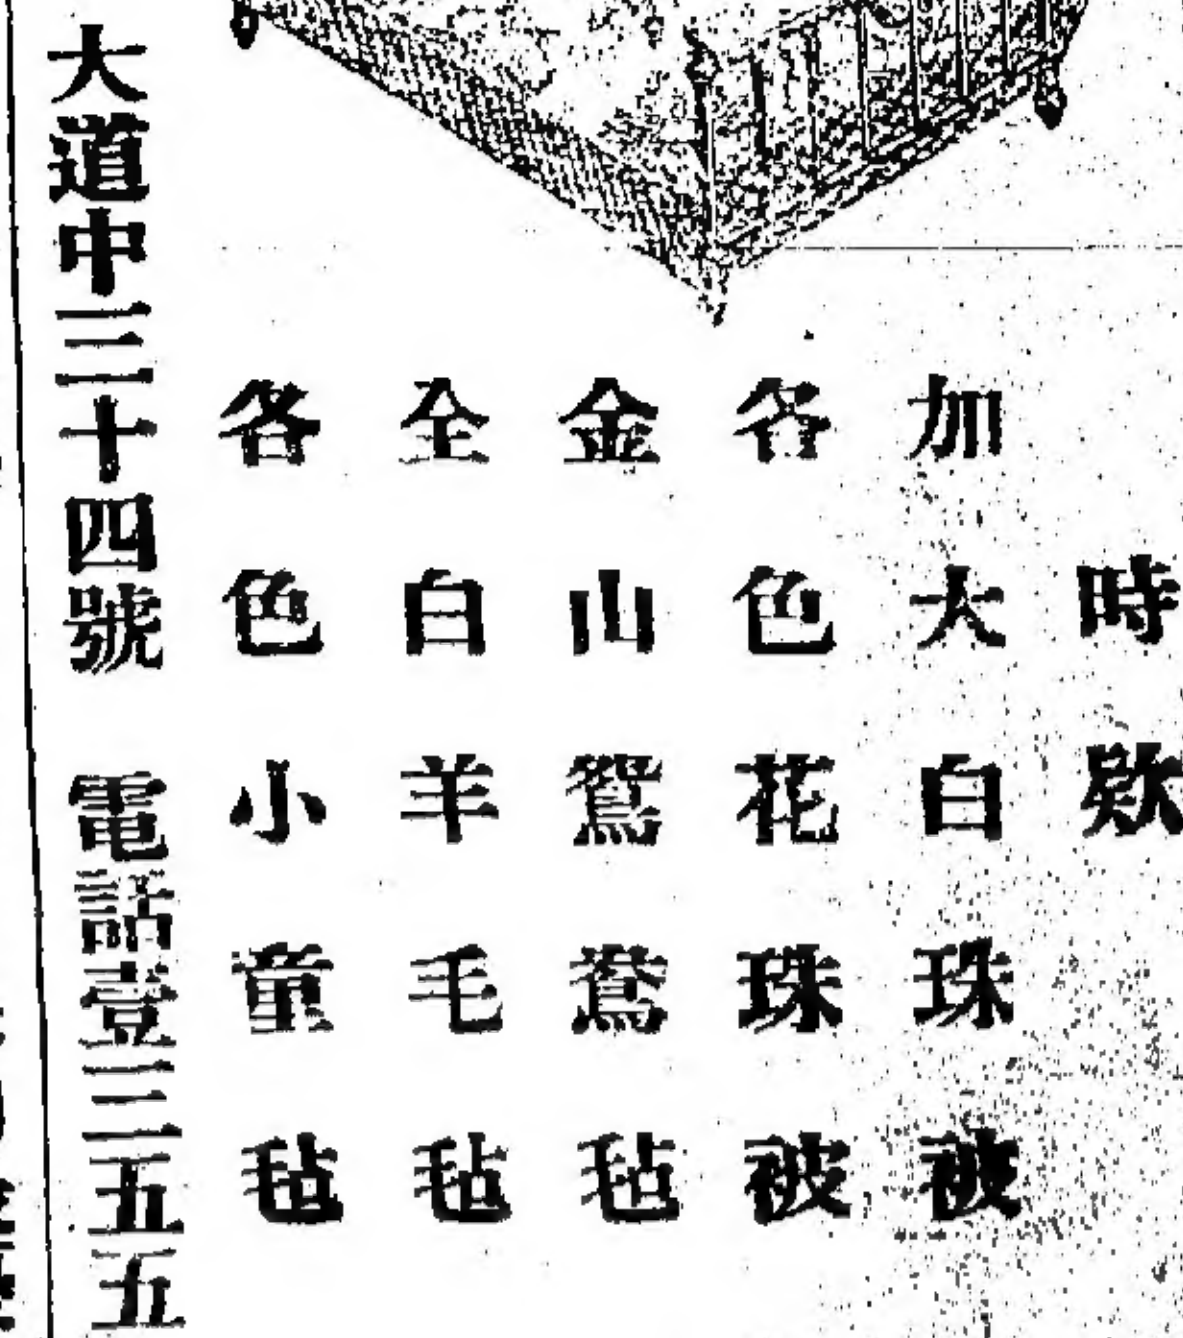 時欵
加大白珠被
各色花珠被
金山鴛鴦毡
全白羊毛毡
各色小童毡
大道中三十四號 電話壹三五五